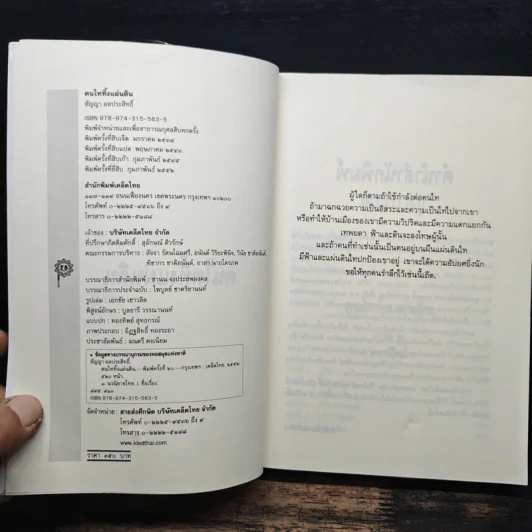 คนไททิ้งแผ่นดิน
สัญญา ผลประสิทธิ์
ISBN 978-974-315-563-5
พิมพ์จำหน่ายและเพื่อสาธารณกุศลสิบหกครั้ง
พิมพ์ครั้งที่สิบเจ็ด มกราคม ๒๕๓๘
พิมพ์ครั้งที่สิบแปด พฤษภาคม ๒๕๔๓
พิมพ์ครั้งที่สิบเก้า กุมภาพันธ์ ๒๕๔๕
พิมพ์ครั้งที่ยี่สิบ กุมภาพันธ์ ๒๕๕๒
สำนักพิมพ์เคล็ดไทย
๑๑๗-๑๑๙ ถนนเฟื่องนคร เขตพระนคร กรุงเทพฯ ๑๐๒๐๐
โทรศัพท์ ๐-๒๒๒๕-๙๕๓๖ ถึง ๙
โทรสาร ๐-๒๒๒๒-๕๑๘๘
เจ้าของ : บริษัทเคล็ดไทย จำกัด
ที่ปรึกษากิตติมศักดิ์ : สุลักษณ์ ศิวรักษ์
บรรณาธิการสำนักพิมพ์ :
บรรณาธิการประจำฉบับ : ไพบูลย์
รูปเล่ม : เอกชัย
พิสูจน์อักษร :
แบบปก : ทองทิพย์
ภาพประกอบ :
ประชาสัมพันธ์ : มนตรี คงเนียม
• ข้อมูลทางบรรณานุกรมของหอสมุดแห่งชาติ
สัญญา ผลประสิทธิ์.
คนไททิ้งแผ่นดิน.--พิมพ์ครั้งที่ ๒๐.--กรุงเทพฯ : เคล็ดไทย, ๒๕๕๒.
๕๒๐ หน้า.
๑. นวนิยายไทย. I. ชื่อเรื่อง
๘๙๕.๙๑๓
ISBN 978-974-315-563-5
จัดจำหน่าย : สายส่งศึกษิต บริษัทเคล็ดไทย จำกัด
โทรศัพท์ ๐-๒๒๒๕-๙๕๓๖ ถึง ๙
โทรสาร ๐-๒๒๒๒-๕๑๘๘
www.kledthai.com
ราคา ๓๕๐ บาท
ผู้ใดก็ตามถ้าใช้กำลังต่อคนไท
ถ้ามาฉกฉวยความเป็นอิสระและความเป็นไทไปจากเขา
หรือทำให้บ้านเมืองของเขามีความวิปริตและมีความแตกแยกกัน
เทพยดา ฟ้าและดินจะลงโทษผู้นั้น
และถ้าคนที่ทำเช่นนั้นเป็นคนอยู่บนผืนแผ่นดินไท
มีฟ้าและแผ่นดินไทปกป้องเขาอยู่ เขาจะได้ความอัปยศยิ่งนัก
ขอให้ทุกคนรำลึกไว้เช่นนี้เถิด.